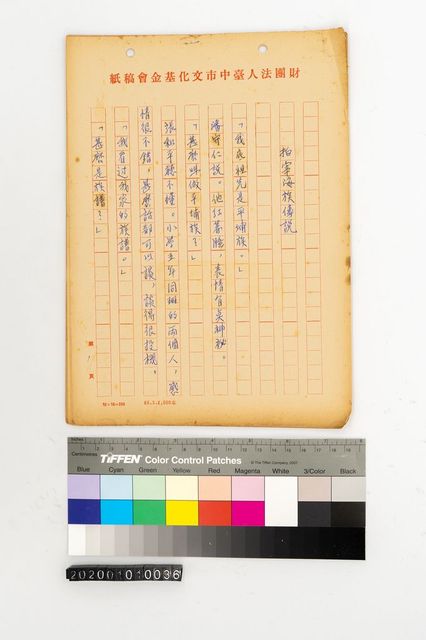 財團法人臺中市文化基金會稿紙
拍宰海族傳說
「我底祖先是平埔族。」
潘守仁說。他紅著臉，表情有夠神秘。
「甚麼叫做平埔族？」
張弘平聽不懂。小學五年同班的兩個人，感
情很不錯，甚麼話都可以談，談得很投機，
「我看过我家的族譜。」
「甚麼是族譜？」
第 1 頁
TIFFEN Color Control Patches
© The Tiffen Company, 2007
Centimetres
Blue
Cyan
Green
Yellow
Red
Magenta
White
3/Color
Black
202001010036